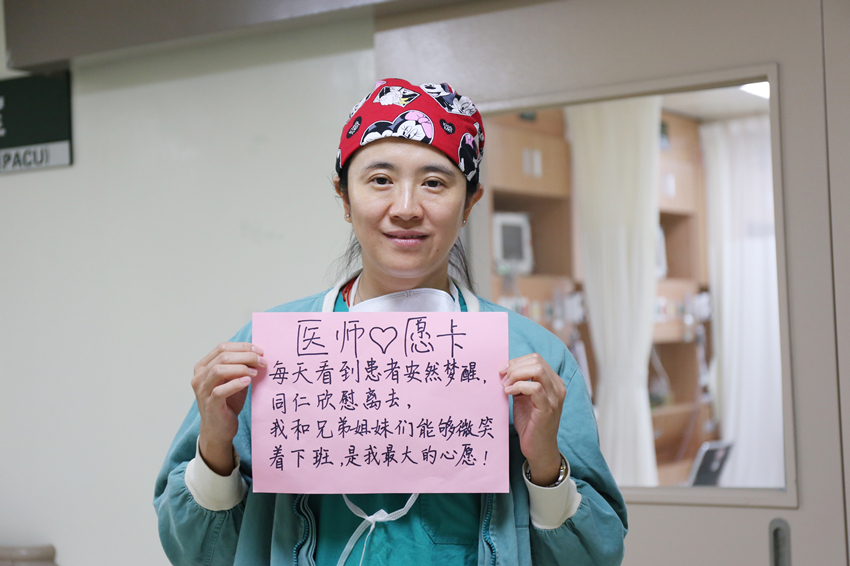 (PACU)
医师♡愿卡
每天看到患者安然梦醒，
同仁欣慰离去，
我和兄弟姐妹们能够微笑
着下班，是我最大的心愿！